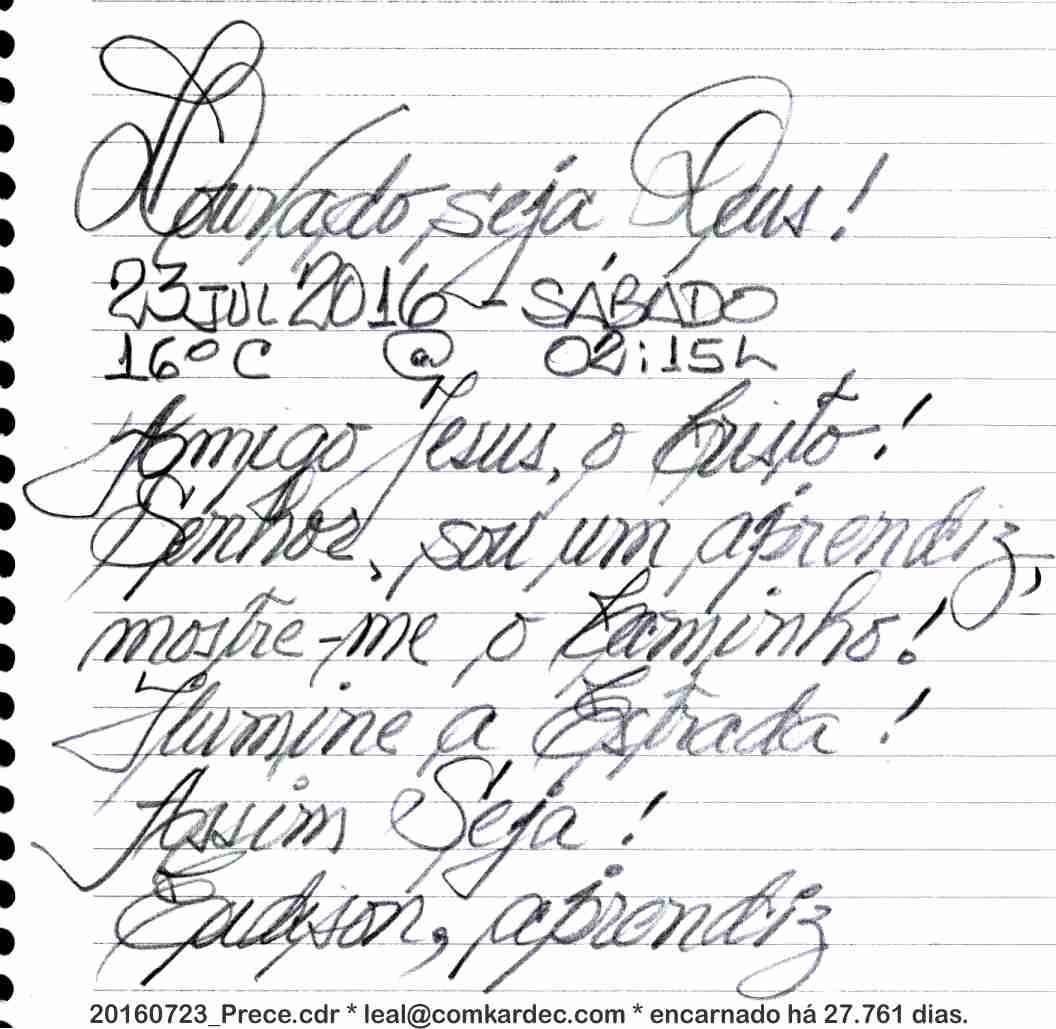 Louvado seja Deus!
23 JUL 2016 - SÁBADO
16º C @ 02:15h
Amigo Jesus, o Cristo!
Senhor, sou um aprendiz,
mostre-me o Caminho!
Ilumine a Estrada!
Assim Seja!
aprendiz
20160723_Prece.cdr * leal@comkardec.com * encarnado há 27.761 dias.